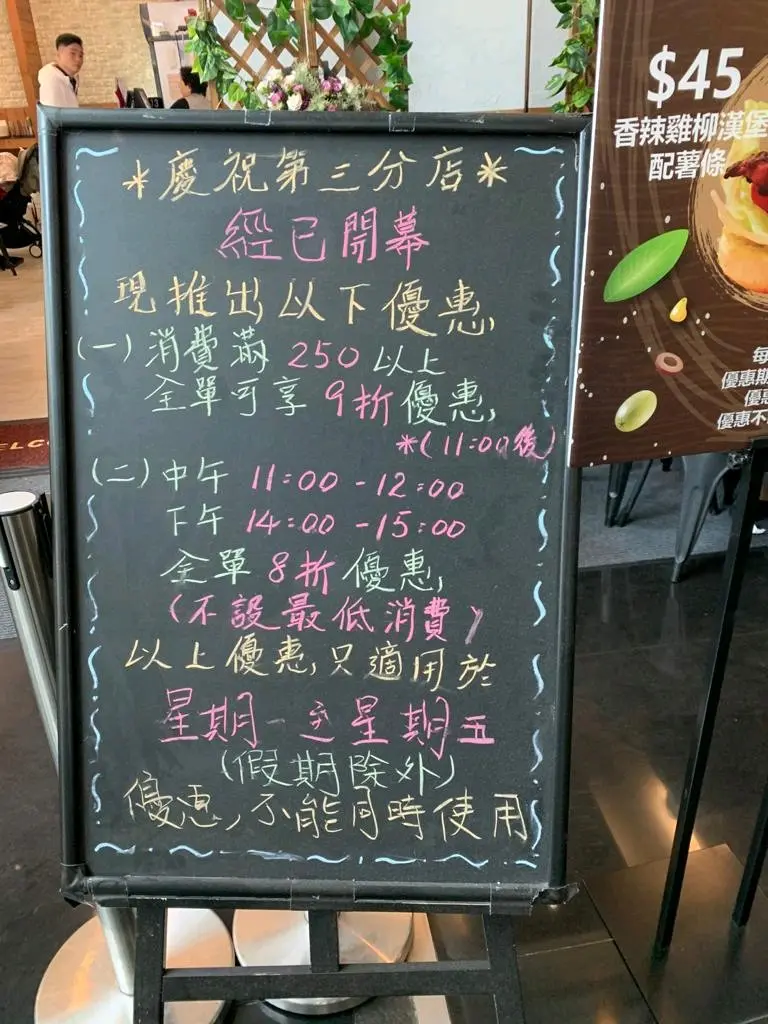 *慶祝第三分店*
經已開幕
現推出以下優惠
(一)消費滿250以上
全單可享9折優惠
*(11:00後)
(二)中午 11:00-12:00
下午 14:00-15:00
全單8折優惠
(不設最低消費)
以上優惠只適用於
星期一至星期五
(假期除外)
優惠不能同時使用
$45
香辣雞柳漢堡
配薯條
每
優惠期
優惠
優惠不
ELC